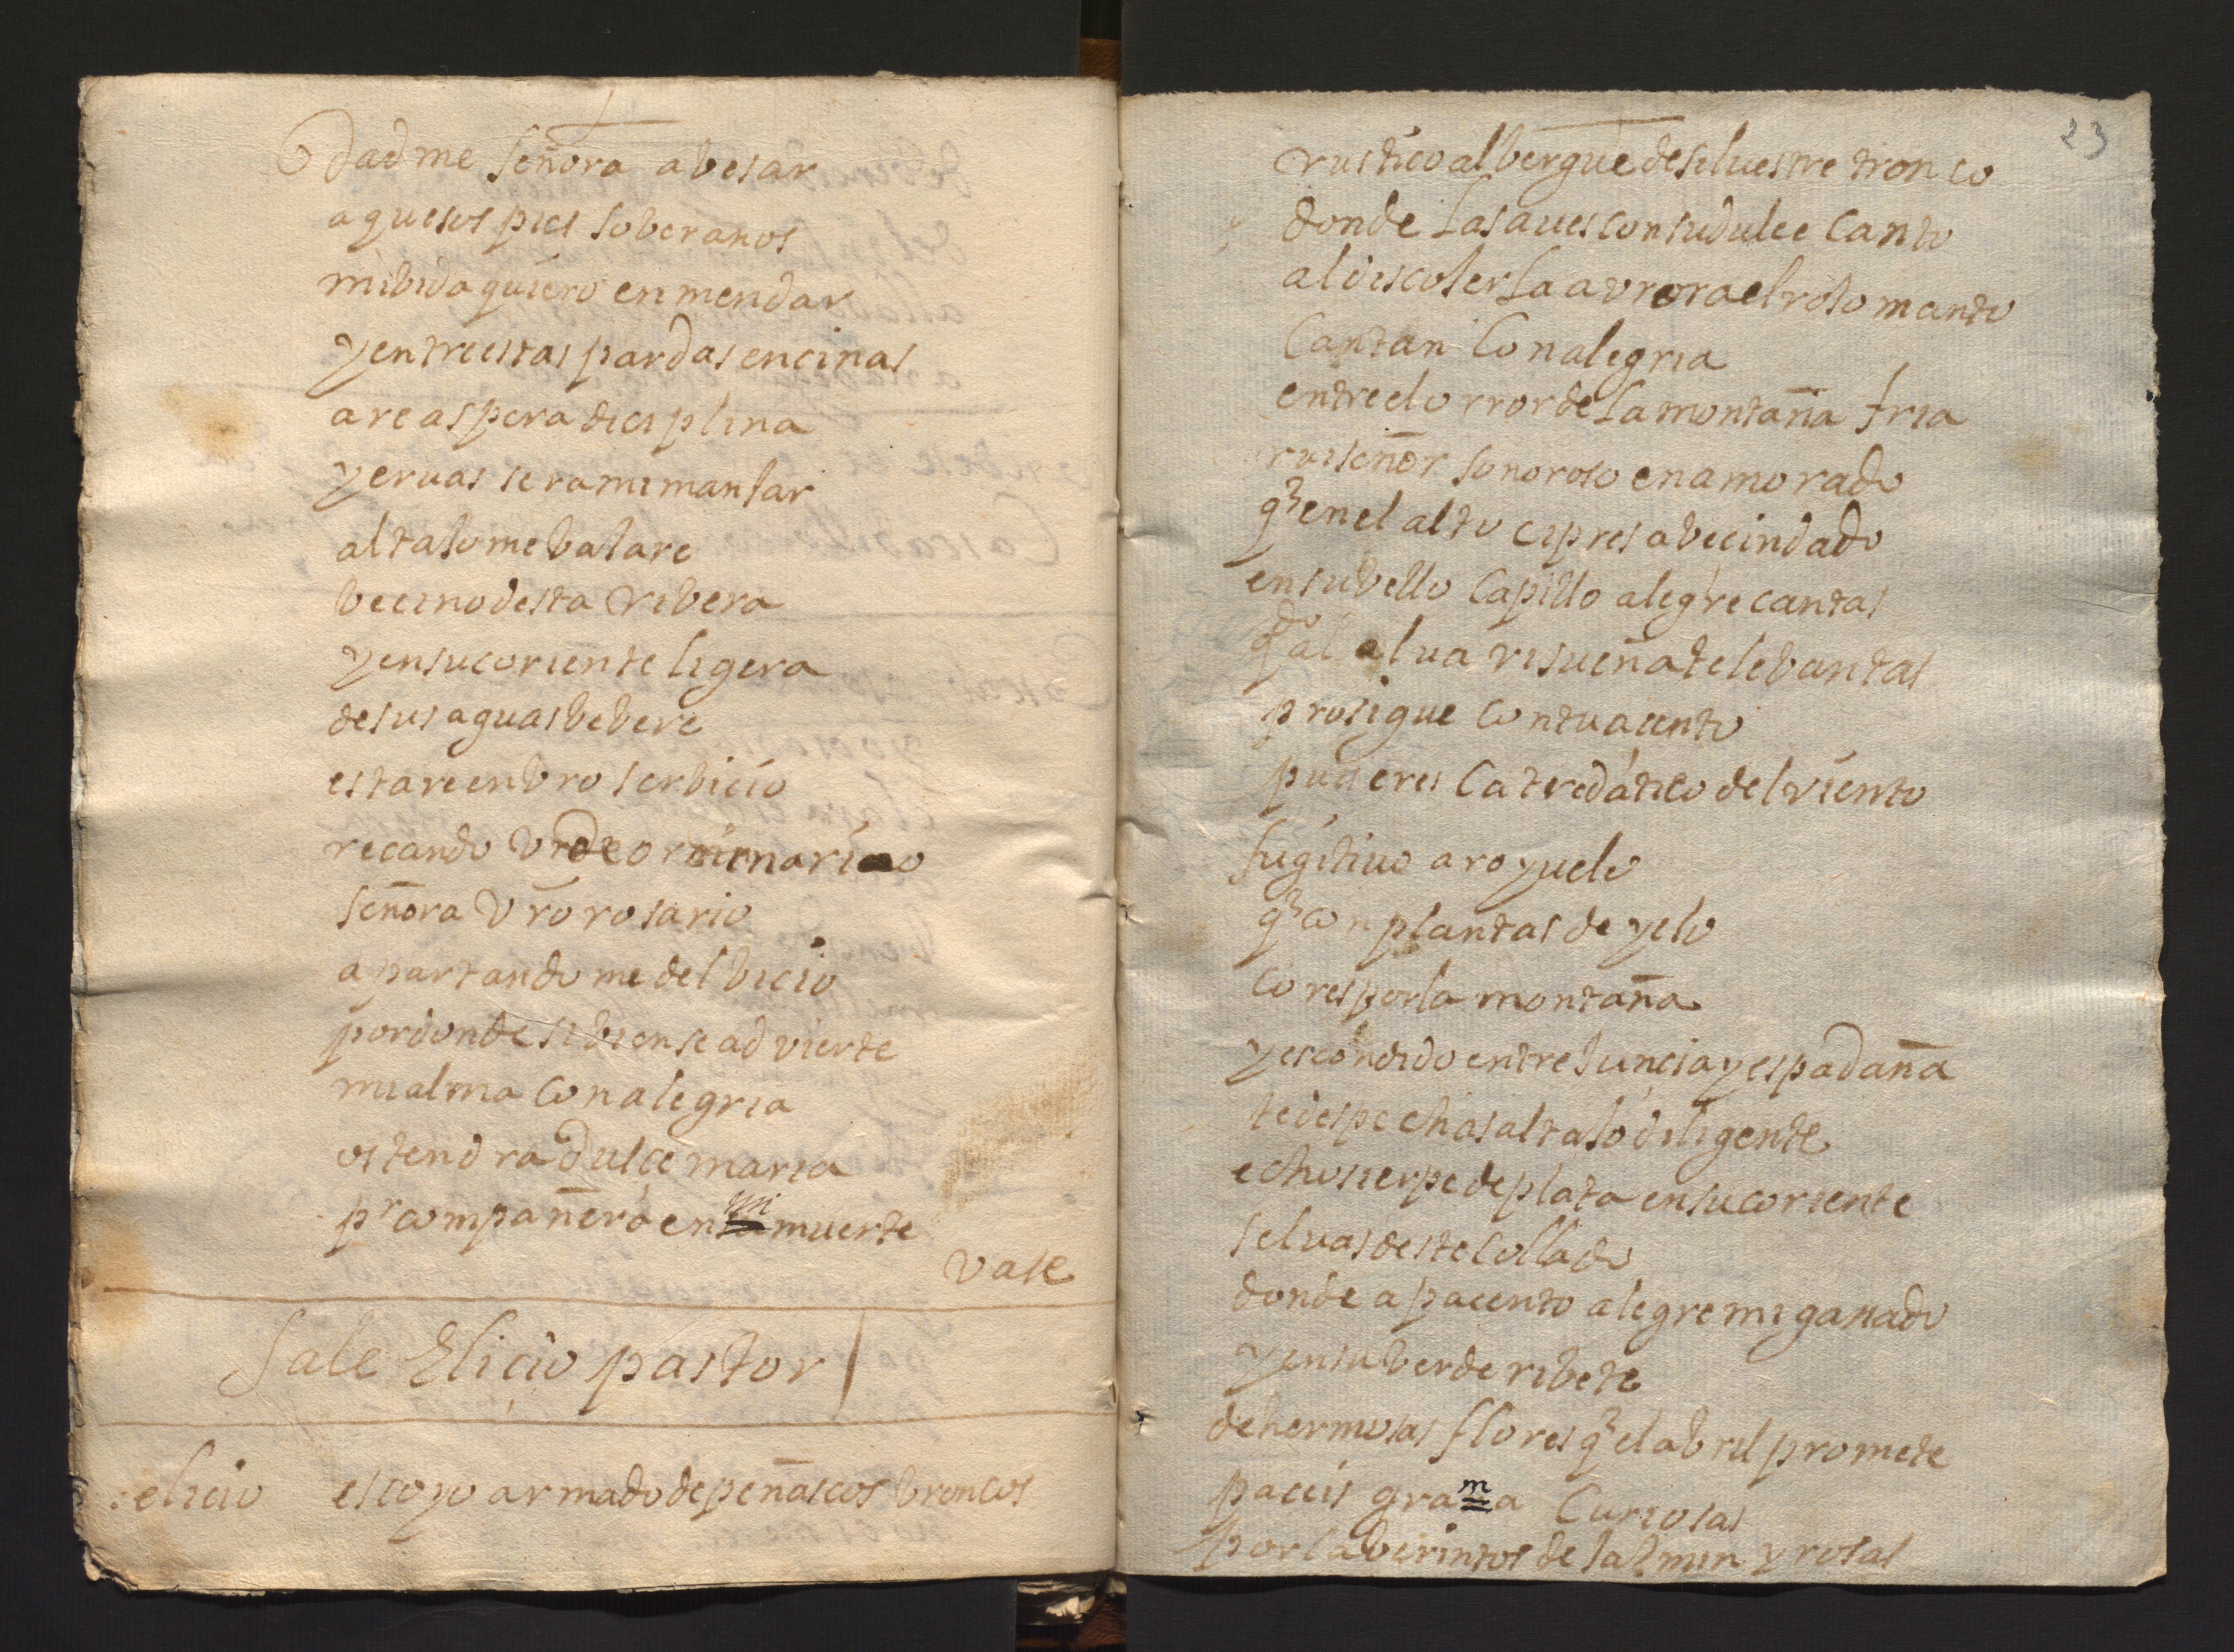 dadme señora abesar
aquesos pies soberanos
mibida quiero enmendar
yentreestas pardas encinas
are aspera diciplina
yeruas sera mi mansar
altasomebalare
becinodesta ribera
yensucoriente ligera
desus aguas bebere
estareenbro serbicio
recando
señora Vro rosario
apartandome del bicio
pordonde sibiense advierte
mialma con alegria
ostendra dulce maria
pr compañero en mi muerte
Vase
Sale Elicio pastor
elicio escoyo armado de peñascos broncos
23
rustico albergue desiluestre tronco
donde las aues consudulce canto
aldiscoser la aurora el roso manto
Cantan Con alegria
entreelorror de la montaña fria
ruiseñor sonoroso enamorado
q en el alto cipres abecindado
ensubello Capillo alegre cantas
qdo al alua risueña te lebantas
prosigue Contuacento
pues eres Catredatico del viento
fugitiuo aroyuelo
q con plantas de yelo
cores por la montaña
yescondido entre juncia y espadaña
te despechas altaso diligente
echo sierpe de plata ensucoriente
seluas deste collado
donde apacento alegre mi ganado
yensu berde ribete
dehermosas flores q el abril promete
paceis grama Curiosas
por laberintos de jazmin y rosas